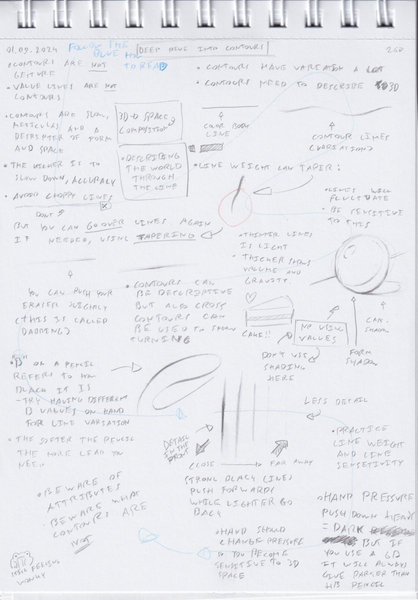 01.09.2024
FOLLOW THE BLUE
TO READ
DEEP DIVE INTO CONTOURS
• CONTOURS ARE NOT
GESTURE
• VALUE LINES ARE NOT
CONTOURS.
• CONTOURS ARE SLOW,
AND A
OF FORM
AND SPACE
3D SPACE
COMPOSITION
• DESCRIBING
THE WORLD
THROUGH
THE LINE
• THE IS TO
SLOW DOWN, ACCURACY
• AVOID CHOPPY LINES
DON'T
BUT YOU CAN GO OVER LINES AGAIN
IF NEEDED, USING TAPERING
YOU CAN PUSH YOUR
ERASER SLIGHTLY
(THIS IS CALLED
DABBING)
• CONTOURS HAVE VARIATION A LOT
• CONTOURS NEED TO DESCRIBE 3D
COLOR BODY
LINE
CONTOUR LINES
(VARIATIONS)
• LINE WEIGHT CAN TAPER:
• LINES WILL
FLUCTUATE
• BE SENSITIVE
TO THIS
• THINNER LINES
IS LIGHT
• THICKER SHOWS
VOLUME AND
GRAVITY.
• CONTOURS CAN
BE DESCRIPTIVE
BUT ALSO CROSS
CONTOURS CAN
BE USED TO SHOW
TURNING
CAKE!!
NO USING
VALUES
FORM
SHADOW
CAST
SHADOW
DON'T USE
SHADING
HERE
• "B" ON A PENCIL
REFERS TO HOW
BLACK IT IS
- TRY HAVING DIFFERENT
B VALUES ON HAND
FOR LINE VARIATION
• THE SOFTER THE PENCIL
THE MORE LEAD YOU
NEED..
DETAIL
IN THE
FRONT
LESS DETAIL
CLOSE
FAR AWAY
STRONG BLACK (LINE)
PUSH FORWARDS
WHILE LIGHTER GO
BACK
• PRACTICE
LINE WEIGHT
AND LINE
SENSITIVITY
• BEWARE OF
ATTRIBUTES
• BEWARE WHAT
CONTOURS ARE
NOT
• HAND SHOULD
CHANGE PRESSURE
SO YOU BECOME
SENSITIVE TO 3D
SPACE
• HAND PRESSURE
PUSH DOWN
= DARK
BUT IF
YOU USE A 6B
IT WILL ALWAYS
GIVE DARKER THAN
HB PENCIL
FEELING
WONKY